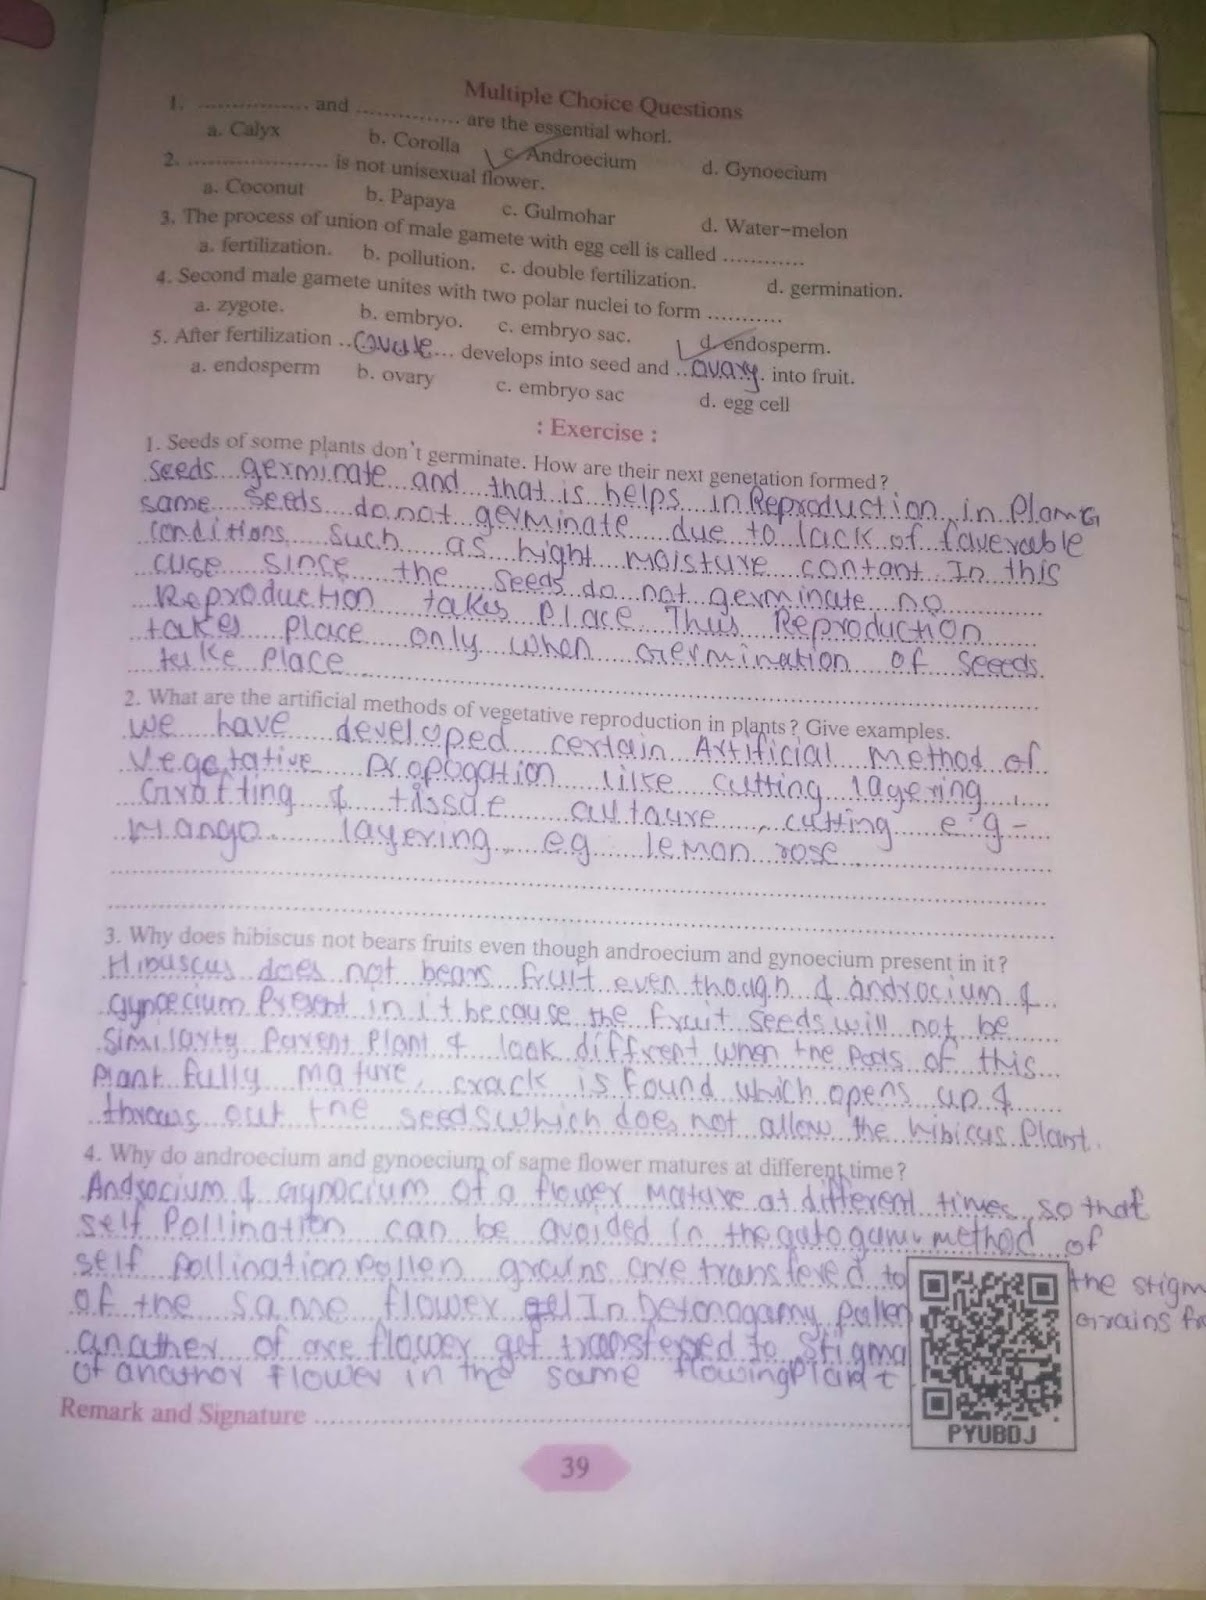 Multiple Choice Questions
1. ................ and ............... are the essential whorl.
a. Calyx b. Corolla c. Androecium d. Gynoecium
2. .................... is not unisexual flower.
a. Coconut b. Papaya c. Gulmohar d. Water-melon
3. The process of union of male gamete with egg cell is called ............
a. fertilization. b. pollution. c. double fertilization. d. germination.
4. Second male gamete unites with two polar nuclei to form ...........
a. zygote. b. embryo. c. embryo sac. d. endosperm.
5. After fertilization ... develops into seed and ..ovary. into fruit.
a. endosperm b. ovary c. embryo sac d. egg cell
: Exercise :
1. Seeds of some plants don't germinate. How are their next genetation formed?
seeds germinate and that is helps in Reproduction in
same seeds do not germinate due to lack of faverable
conditions such as hight moisture contant In this
cuse since the seeds do not germinate no
Reproduction takes place Thus Reproduction
takes place only when Germination of seeds
take place
2. What are the artificial methods of vegetative reproduction in plants? Give examples.
we have developed certain Artificial method of
vegetative propogation like cutting layering
Gratting & tissue cultaure, cutting e.g-
Mango. layering, e.g lemon rose
3. Why does hibiscus not bears fruits even though androecium and gynoecium present in it?
Hibuscus does not bears fruit even though & androcium &
gynoecium Present in it because the fruit seeds will not be
similarty Parent Plant & look diffrent when the Pods of this
Plant fully mature, crack is found which opens up &
throws out the seeds which does not allow the hibicus Plant.
4. Why do androecium and gynoecium of same flower matures at different time?
Androcium & Gynocium of a flower mature at different times, so that
self Pollination can be avoided in the method of
self pollination Pollen grains are transfered to the stigm
of the same flower In pollen Grains fr
anather of one flower get transferred to Stigma
of anathor flower in the same flowing Plant
Remark and Signature
PYUBDJ
39